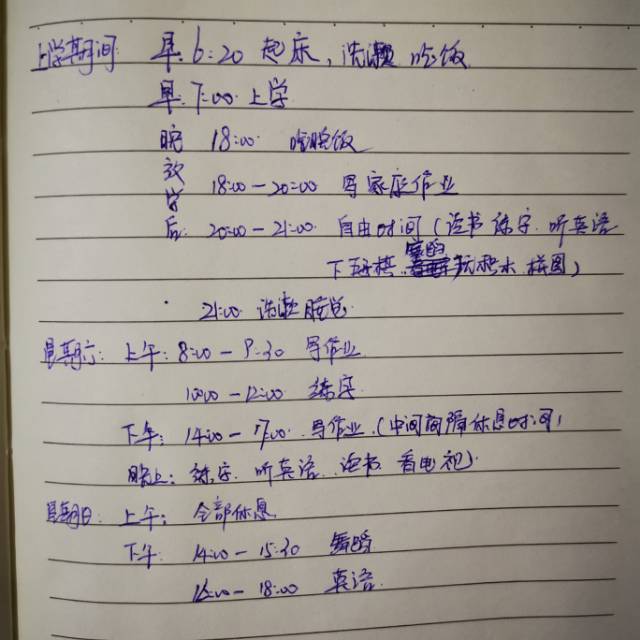 上学期间 早6:20 起床,洗漱 吃饭
早7:00 上学
晚放学后 18:00 吃晚饭
18:00-20:00 写家庭作业
20:00-21:00 自由时间(读书 练字 听英语
下跳棋 舞蹈 玩积木 拼图)
21:00 洗漱 睡觉
星期六: 上午: 8:00-9:30 写作业
10:00-12:00 练字
下午: 14:00-17:00 写作业(中间间隔休息时间)
晚上: 练字 听英语 读书 看电视)
星期日: 上午: 全部休息
下午 14:00-15:30 舞蹈
16:00-18:00 英语